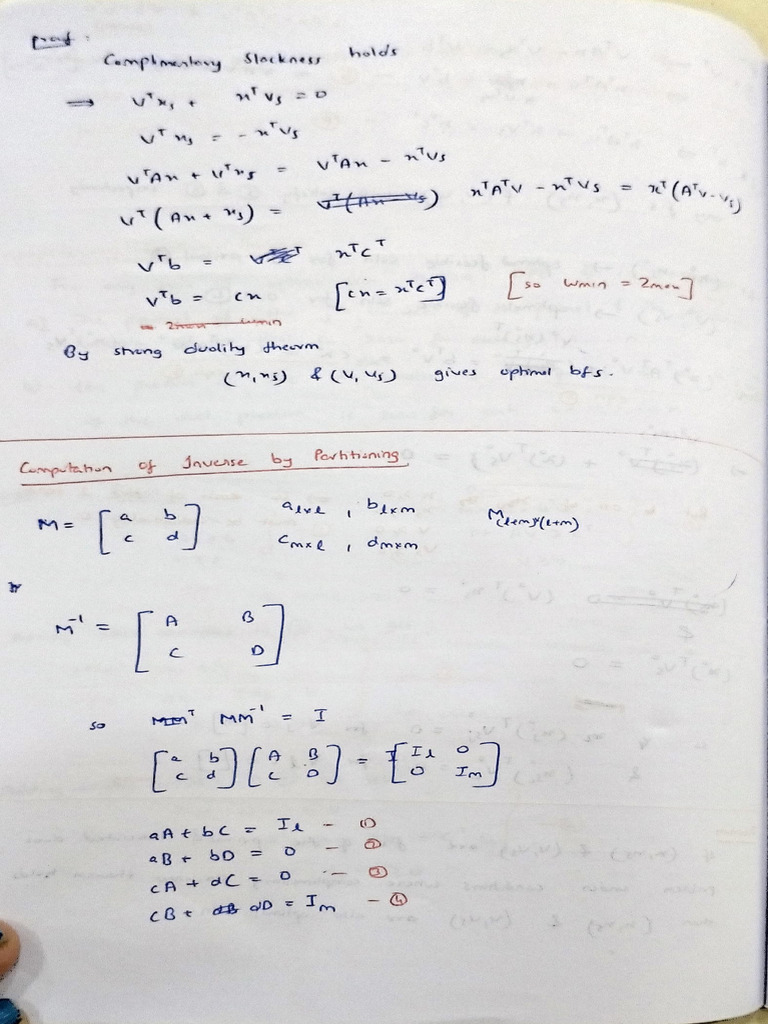 proof :
Complimentary Slackness holds
⟹ vᵀxₛ + xᵀvₛ = 0
vᵀxₛ = - xᵀvₛ
vᵀAx + vᵀxₛ = vᵀAx - xᵀvₛ
vᵀ(Ax + xₛ) = xᵀAᵀv - xᵀvₛ = xᵀ(Aᵀv - vₛ)
vᵀb = xᵀcᵀ
vᵀb = cx [cx = xᵀcᵀ] [so Wmin = Zmax]
By strong duality theorm
(x, xₛ) & (v, vₛ) gives optimal bfs.
Computation of Inverse by Partitioning
M = [a b
c d] a l×l , b l×m M(l+m)×(l+m)
c m×l , d m×m
M⁻¹ = [A B
C D]
so MM⁻¹ = I
[a b [A B = [Iₗ 0
c d] C D] 0 Iₘ]
aA + bC = Iₗ - ①
aB + bD = 0 - ②
cA + dC = 0 - ③
cB + dD = Iₘ - ④